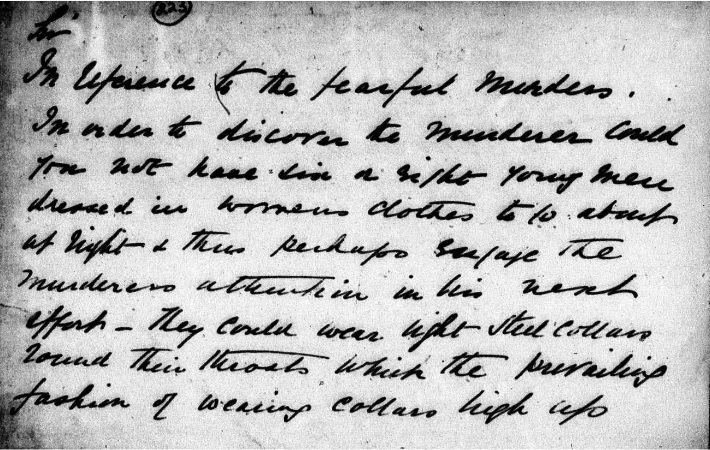 223
Sir
In reference to the fearful Murders.
In order to discover the Murderer could
you not have six or eight young men
dressed in womens clothes to go about
at night & thus perhaps engage the
murderers attention in his next
effort – They could wear light steel collars
round their throats which the prevailing
fashion of wearing collars high up